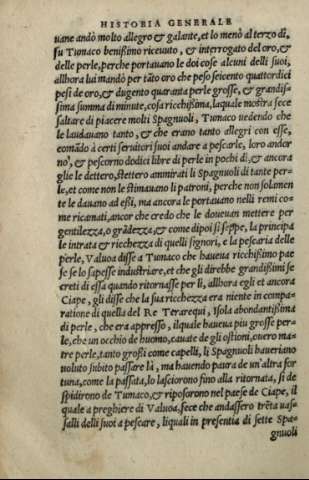 HISTORIA GENERALE
uane andò molto allegro & galante, et lo menò al terzo dì.
fu Tumaco benissimo riceuuto, & interrogato del oro, &
delle perle, perche portauano le doi cose alcuni delli suoi,
allhora lui mandò per tãto oro che peso seicento quattordici
pesi de oro, & dugento quaranta perle grosse, & grandis
sima summa di minute, cosa ricchißima, laquale mostra fece
saltare di piacere molti Spagnuoli, Tumaco uedendo che
le laudauano tanto, & che erano tanto allegri con esse,
comãdò à certi seruitori suoi andare a pescarle, loro andor
no', & pescorno dodici libre di perle in pochi dì, & ancora
glie le dettero, stettero ammirati li Spagnuoli di tante per-
le, et come non le stimauano li patroni, perche non solamen
te le dauano ad essi, ma ancora le portauano nelli remi co-
me ricanati, ancor che credo che le doueuan mettere per
gentilezza, o grãdezza, & come dipoi si seppe, la principa
le intrata & ricchezza di quelli signori, e la pescaria delle
perle, Valuoa disse a Tumaco che haueua ricchißimo pae
se se lo sapesse industriare, et che gli direbbe grandißimi se
creti di essa quando ritornasse per lì, allhora egli et ancora
Ciape, gli disse che la sua ricchezza era niente in compa-
ratione di quella del Re Terarequi, Isola abondantißima
di perle, che era appresso, ilquale haueua piu grosse per-
le, che un occhio de huomo, cauate de gli ostioni, ouero ma-
tre perle, tanto grossi come capelli, li Spagnuoli haueriano
uoluto subito passare là, ma hauendo paura de un'altra for
tuna, come la passata, lo lasciorono fino alla ritornata, si de
spidirono de Tumaco, & riposorono nel paese de Ciape, il
quale a preghiere di Valuoa, fece che andassero trẽta uas-
salli delli suoi a pescare, liquali in presentia di sette Spa-
gnuoli